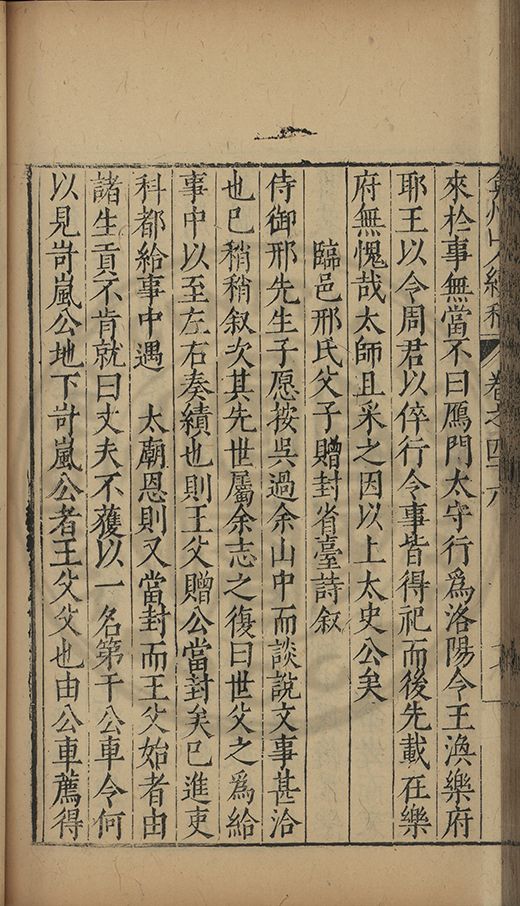 弇州山人續稿 卷之四十六
來於事無當不曰鴈門太守行爲洛陽令王渙樂府
耶王以令周君以倅行令事皆得祀而後先載在樂
府無愧哉太師且采之因以上太史公矣
臨邑邢氏父子贈封省臺詩叙
侍御邢先生子愿按吳過余山中而談說文事甚洽
也已稍稍叙次其先世屬余志之復曰世父之爲給
事中以至左右奏績也則王父贈公當封矣已進吏
科都給事中遇 太廟恩則又當封而王父始者由
諸生貢不肯就曰丈夫不蔓以一名第干公車令何
以見岢嵐公地下岢嵐公者王父父也由公車薦得